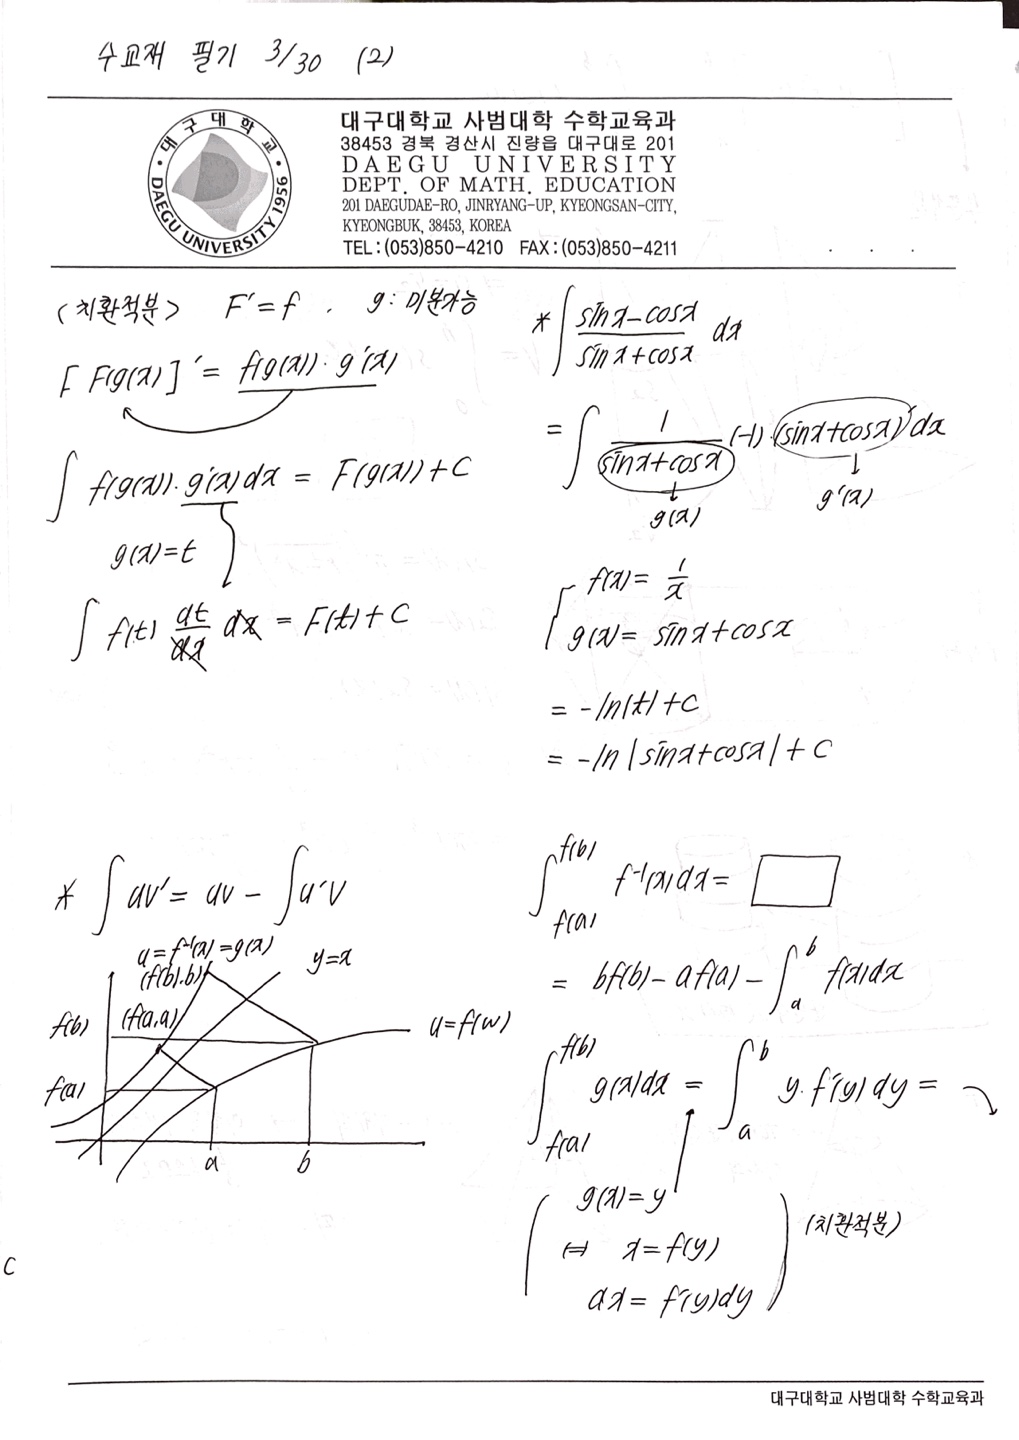 수교재 필기 3/30 (2)
대구대학교
DAEGU UNIVERSITY 1956
대구대학교 사범대학 수학교육과
38453 경북 경산시 진량읍 대구대로 201
DAEGU UNIVERSITY
DEPT. OF MATH. EDUCATION
201 DAEGUDAE-RO, JINRYANG-UP, KYEONGSAN-CITY,
KYEONGBUK, 38453, KOREA
TEL : (053)850-4210 FAX : (053)850-4211
<치환적분> F'=f . g: 미분가능
[F(g(x)]' = f(g(x))·g'(x)
∫ f(g(x))·g'(x)dx = F(g(x))+C
g(x)=t
∫ f(t) dt/dx dx = F(t)+C
* ∫ (sinx-cosx)/(sinx+cosx) dx
= ∫ 1/(sinx+cosx) (-1)·(sinx+cosx)'dx
g(x) g'(x)
f(x) = 1/x
g(x) = sinx+cosx
= -ln|t|+C
= -ln|sinx+cosx|+C
* ∫ uv' = uv - ∫ u'v
u=f⁻¹(x)=g(x)
(f(b),b) y=x
f(b) (f(a),a) u=f(w)
f(a)
a b
∫_{f(a)}^{f(b)} f⁻¹(x)dx = □
= bf(b) - af(a) - ∫_a^b f(x)dx
∫_{f(a)}^{f(b)} g(x)dx = ∫_a^b y·f'(y)dy =
g(x)=y
⇔ x=f(y)
dx = f'(y)dy
(치환적분)
C
대구대학교 사범대학 수학교육과